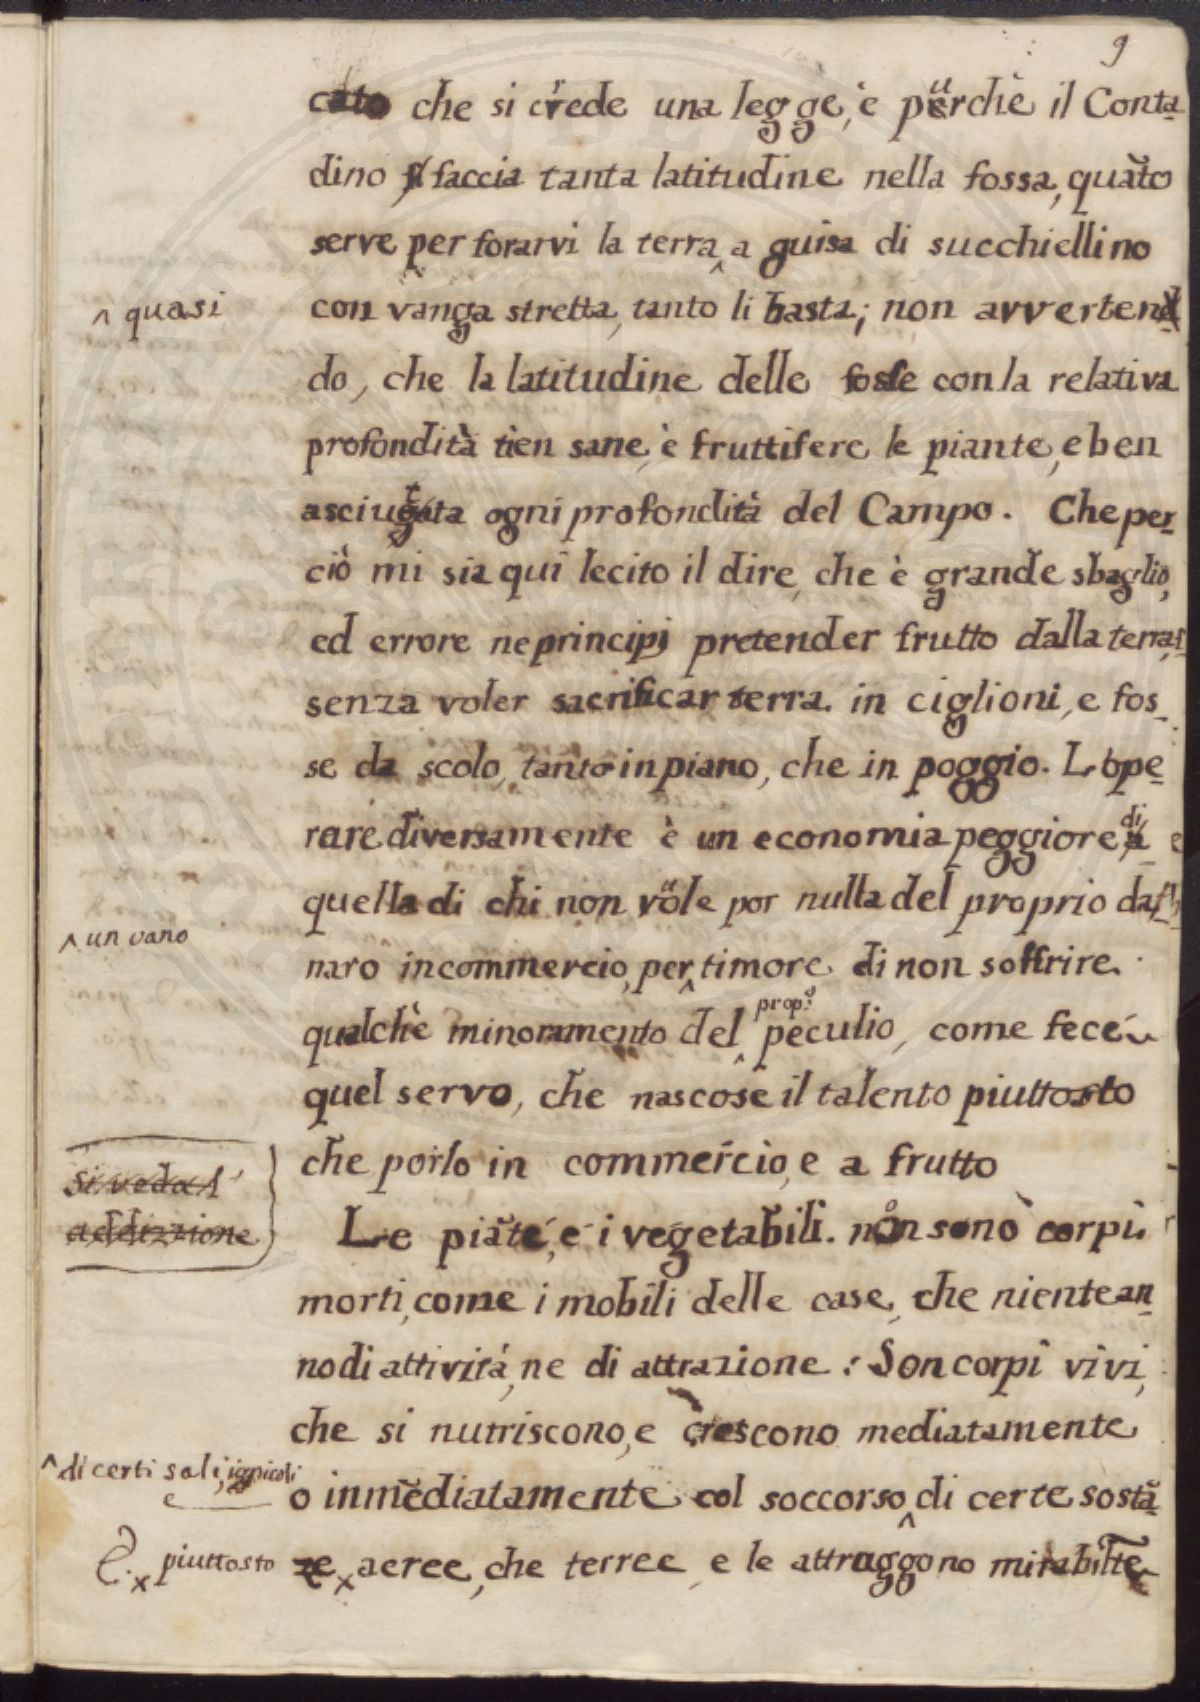 9
cato che si crede una legge, è purchè il Conta-
dino faccia tanta latitudine nella fossa, quāto
serve per forarvi la terra ^ a guisa di succhiellino
^ quasi
con vanga stretta, tanto li basta; non avverten
do, che la latitudine delle fosse con la relativa
profondità tien sane, è fruttifere le piante, e ben
asciutta ogni profondità del Campo. Che per-
ciò mi sia qui lecito il dire, che è grande sbaglio,
ed errore ne principj pretender frutto dalla terra,
senza voler sacrificar terra in ciglioni, e fos-
se da scolo, tanto in piano, che in poggio. L'ope-
rare diversamente è un economia peggiore di
quella di chi non vuole por nulla del proprio da-
^ un vano
naro in commercio, per ^ timore di non soffrire
qualchè minoramento del ^ prop.o peculio, come fece
quel servo, che nascose il talento piuttosto
che porlo in commercio, e a frutto
si veda l'
addizzione
Le piāte, e i vegetabili non sono corpi
morti, come i mobili delle case, che niente an-
no di attività, ne di attrazione: Son corpi vivi,
che si nutriscono, e crescono mediatamente
^ di certi sali, ignicoli
o inmediatamente col soccorso ^ di certe sostā-
x piuttosto
ze x aeree, che terree, e le attraggono mirabilte